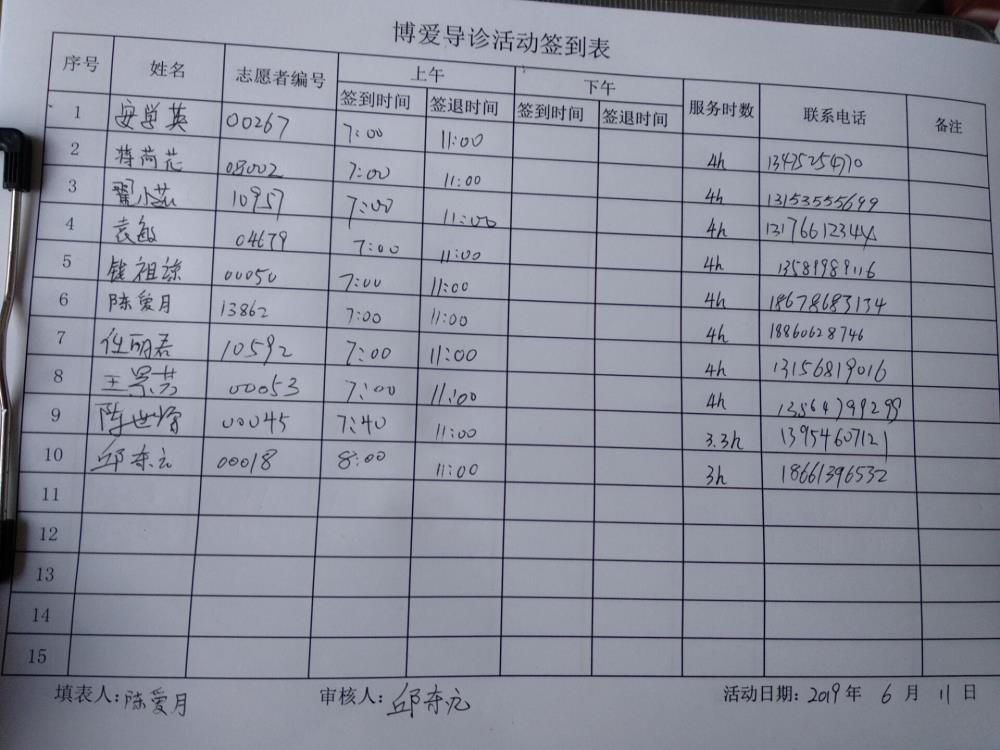 博爱导诊活动签到表
序号 姓名 志愿者编号 上午 下午 服务时数 联系电话 备注
签到时间 签退时间 签到时间 签退时间
1 安学英 00267 7:00 11:00 4h 13475254770
2 蒋荷芯 05002 7:00 11:00 4h 13153555699
3 翟小 10957 7:00 11:00 4h 13176612344
4 袁敏 04679 7:00 11:00 4h 13589989116
5 钱祖 00050 7:00 11:00 4h 18678683134
6 陈爱月 13862 7:00 11:00 4h 18860628746
7 任丽君 10592 7:00 11:00 4h 13156819016
8 王景芳 00053 7:00 11:00 4h 13564799299
9 陈世 00045 7:40 11:00 3.3h 13954607121
10 邱奪元 00018 8:00 11:00 3h 18661396532
11
12
13
14
15
填表人:陈爱月 审核人:邱夺元 活动日期:2019年 6 月 11 日